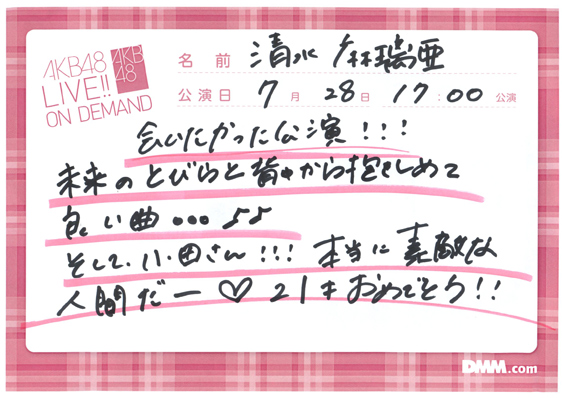 AKB48
LIVE!!
ON DEMAND
AKB
48
名前 清水麻璃亜
公演日 7月 28日 17:00 公演
会いたかった公演!!!
未来のとびらと背中から抱きしめて
良い曲•••♪♪
そして、小田さん!!! 本当に素敵な
人間だー♡ 21才おめでとう!!
DMM.com